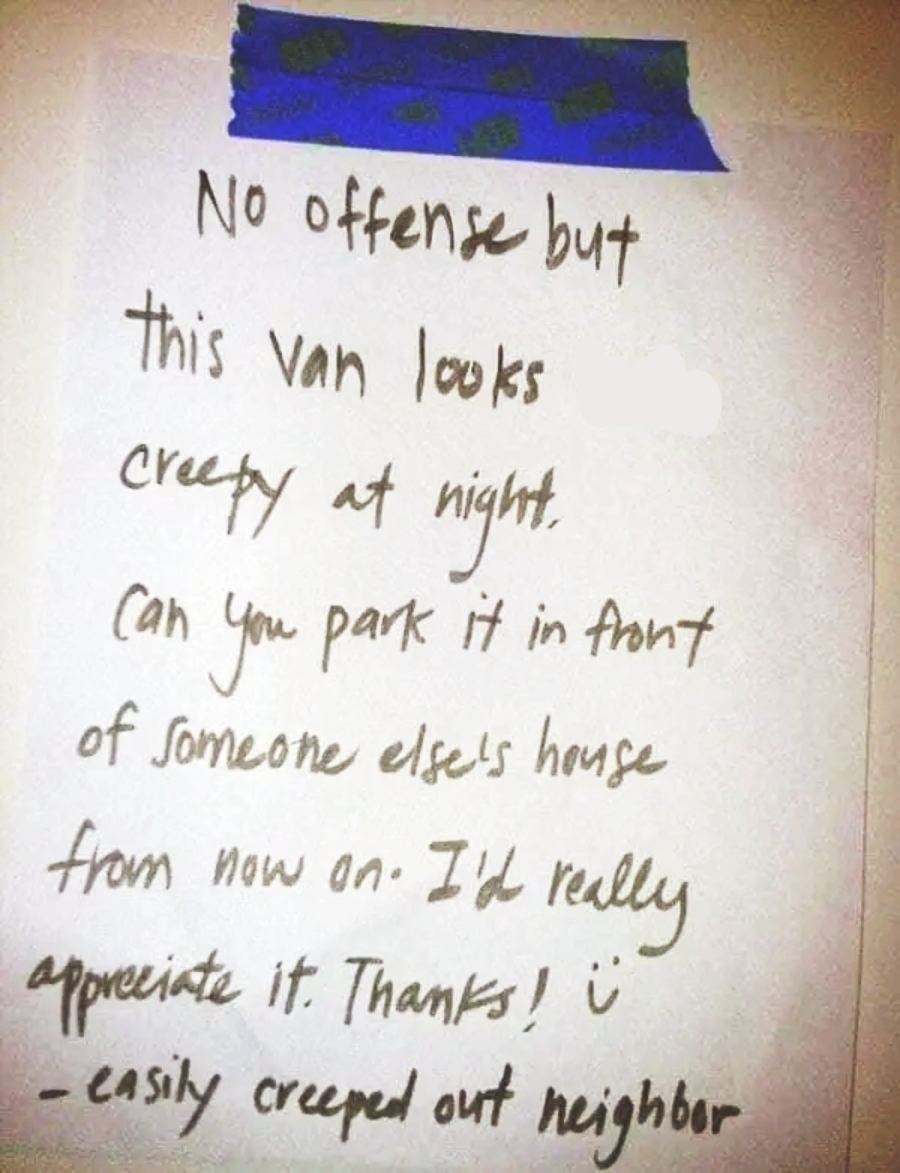 No offense but
this van looks
creepy at night.
Can you park it in front
of someone else's house
from now on. I'd really
appreciate it. Thanks! ü
- easily creeped out neighbor